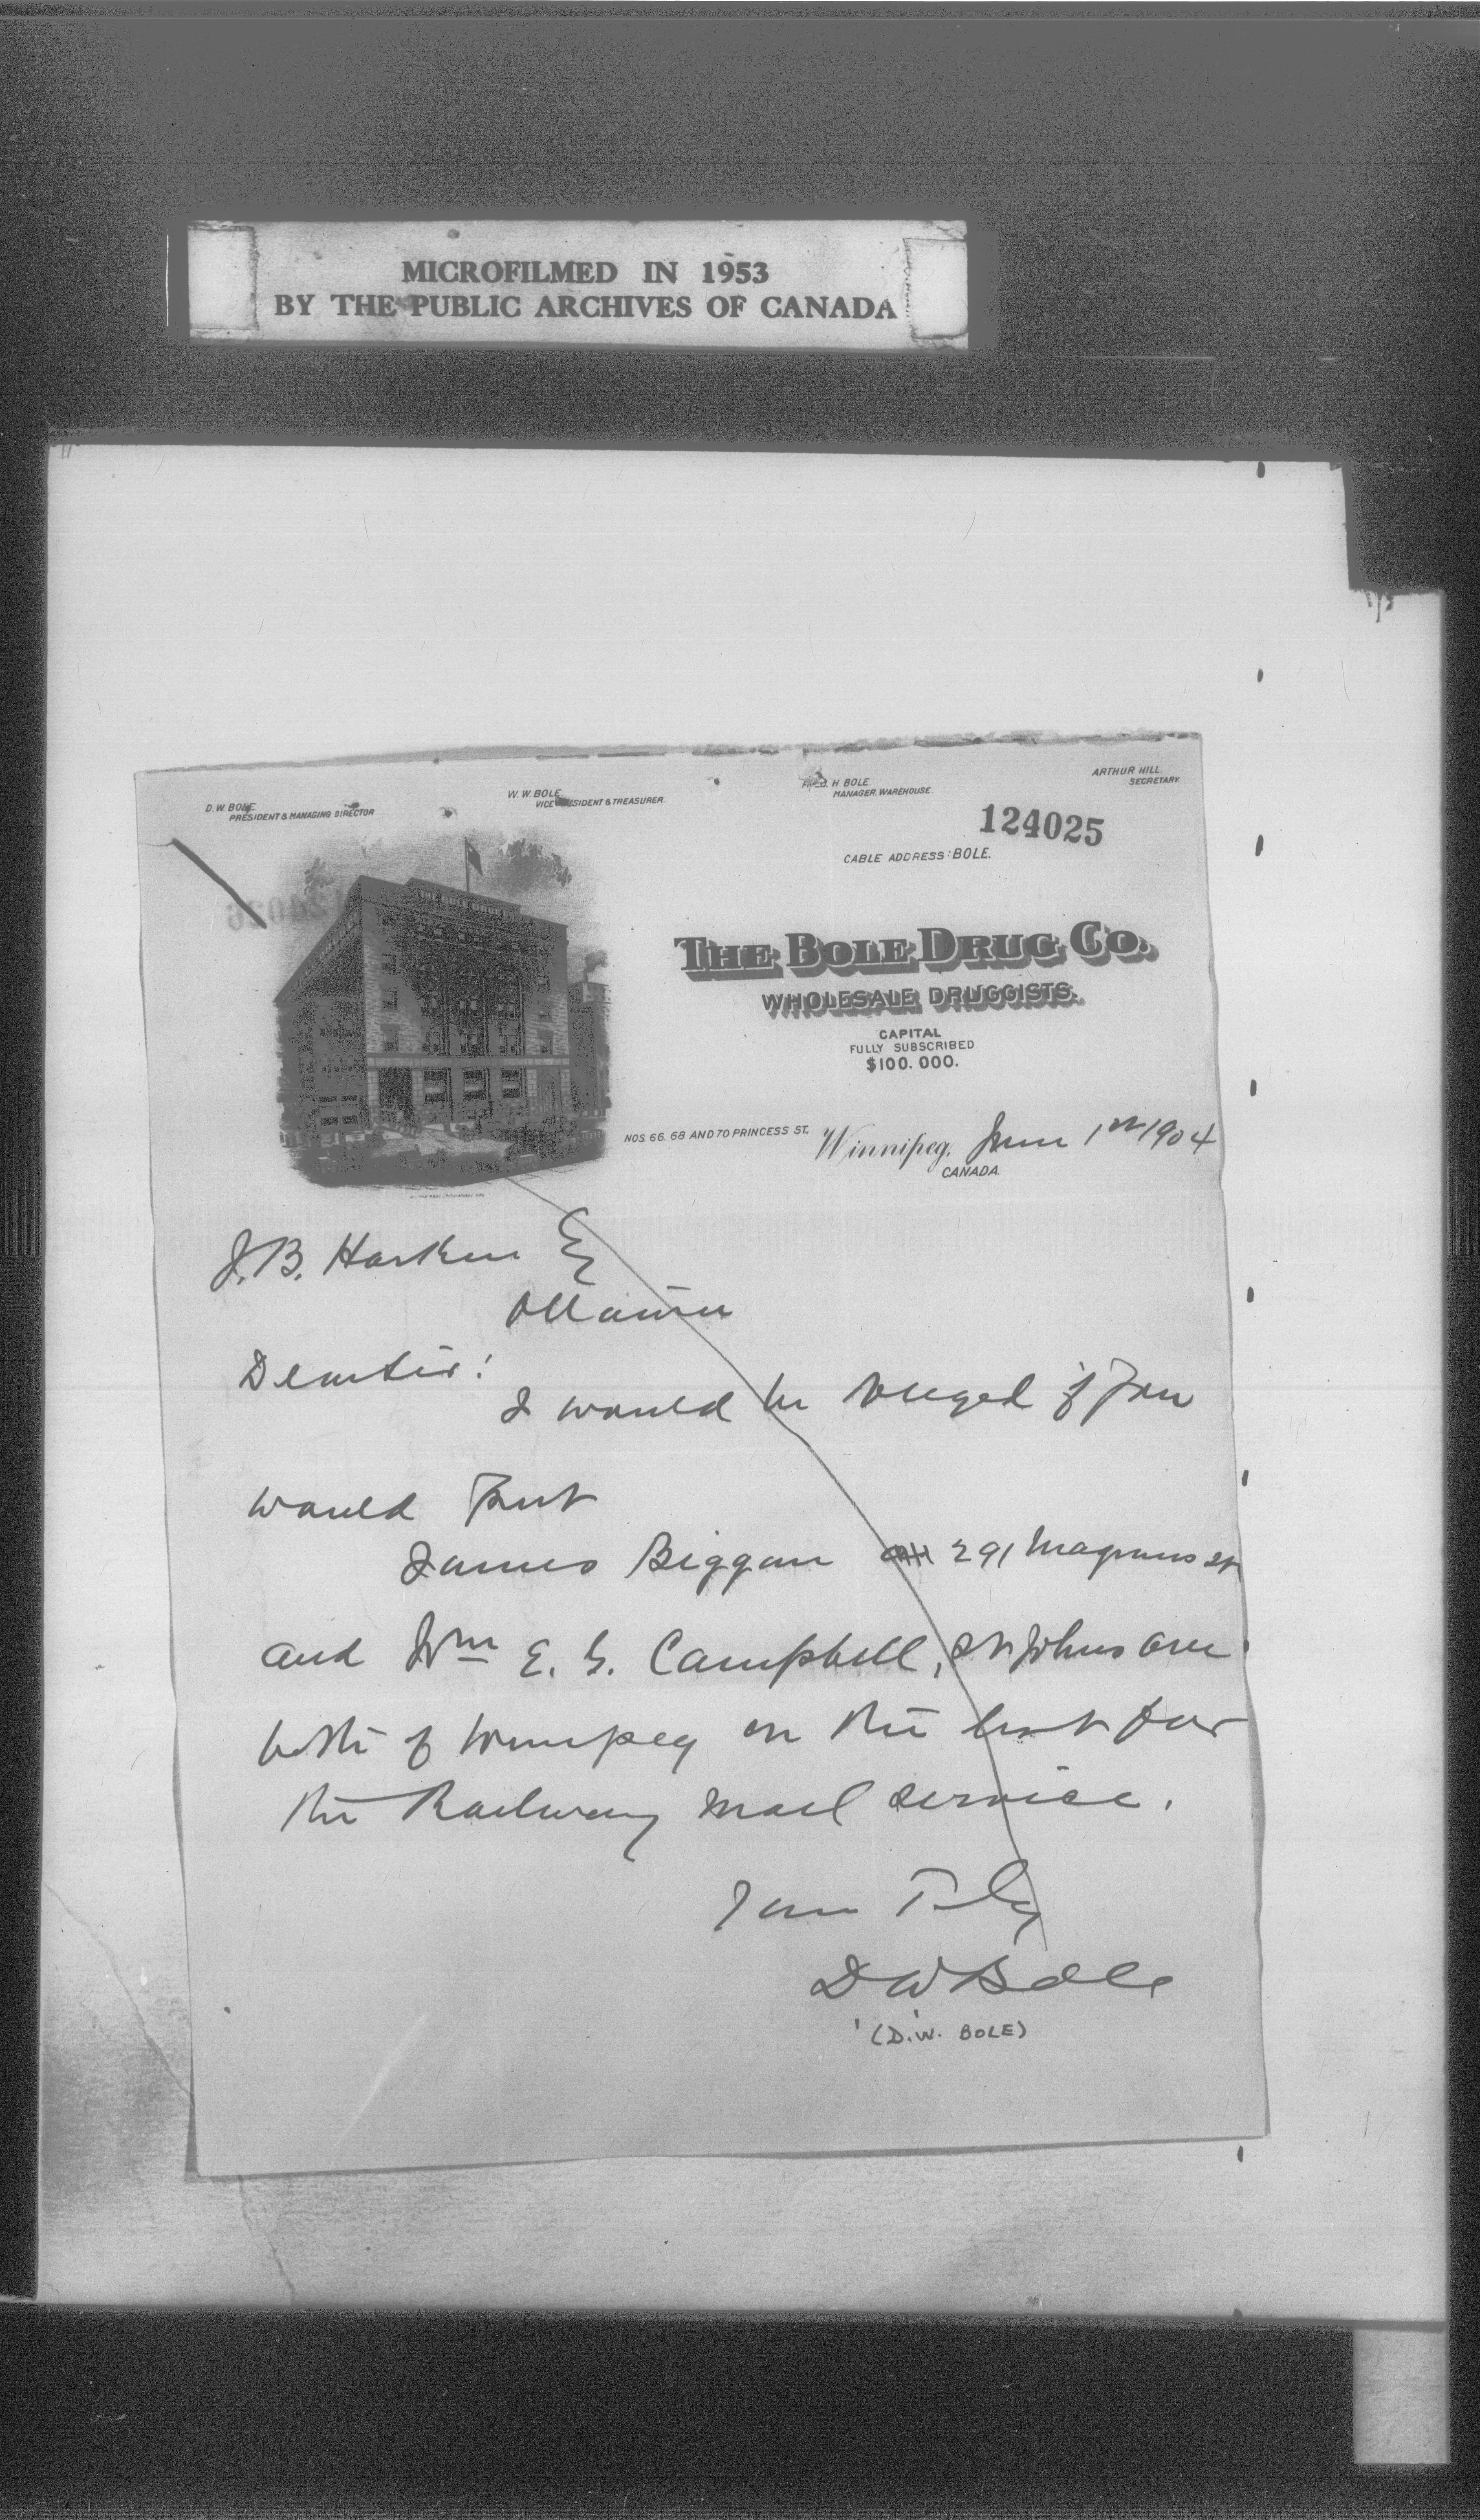 MICROFILMED IN 1953
BY THE PUBLIC ARCHIVES OF CANADA
D. W. BOLE
PRESIDENT & MANAGING DIRECTOR
W. W. BOLE
VICE PRESIDENT & TREASURER
FRED. H. BOLE
MANAGER. WAREHOUSE
ARTHUR HILL.
SECRETARY
124025
CABLE ADDRESS: BOLE.
THE BOLE DRUG CO.
THE BOLE DRUG CO.
WHOLESALE DRUGGISTS.
CAPITAL
FULLY SUBSCRIBED
$100.000.
NOS. 66. 68 AND 70 PRINCESS ST. Winnipeg, June 1st 1904
CANADA
J.B. Harkin Esq
Ottawa
Dear Sir:
I would be obliged if you
would put
James Biggan 291 Magnus St
and Wm E. G. Campbell, St Johns Ave
both of Winnipeg on the list for
the Railway Mail Service.
Yours Truly
D W Bole
(D.W. BOLE)